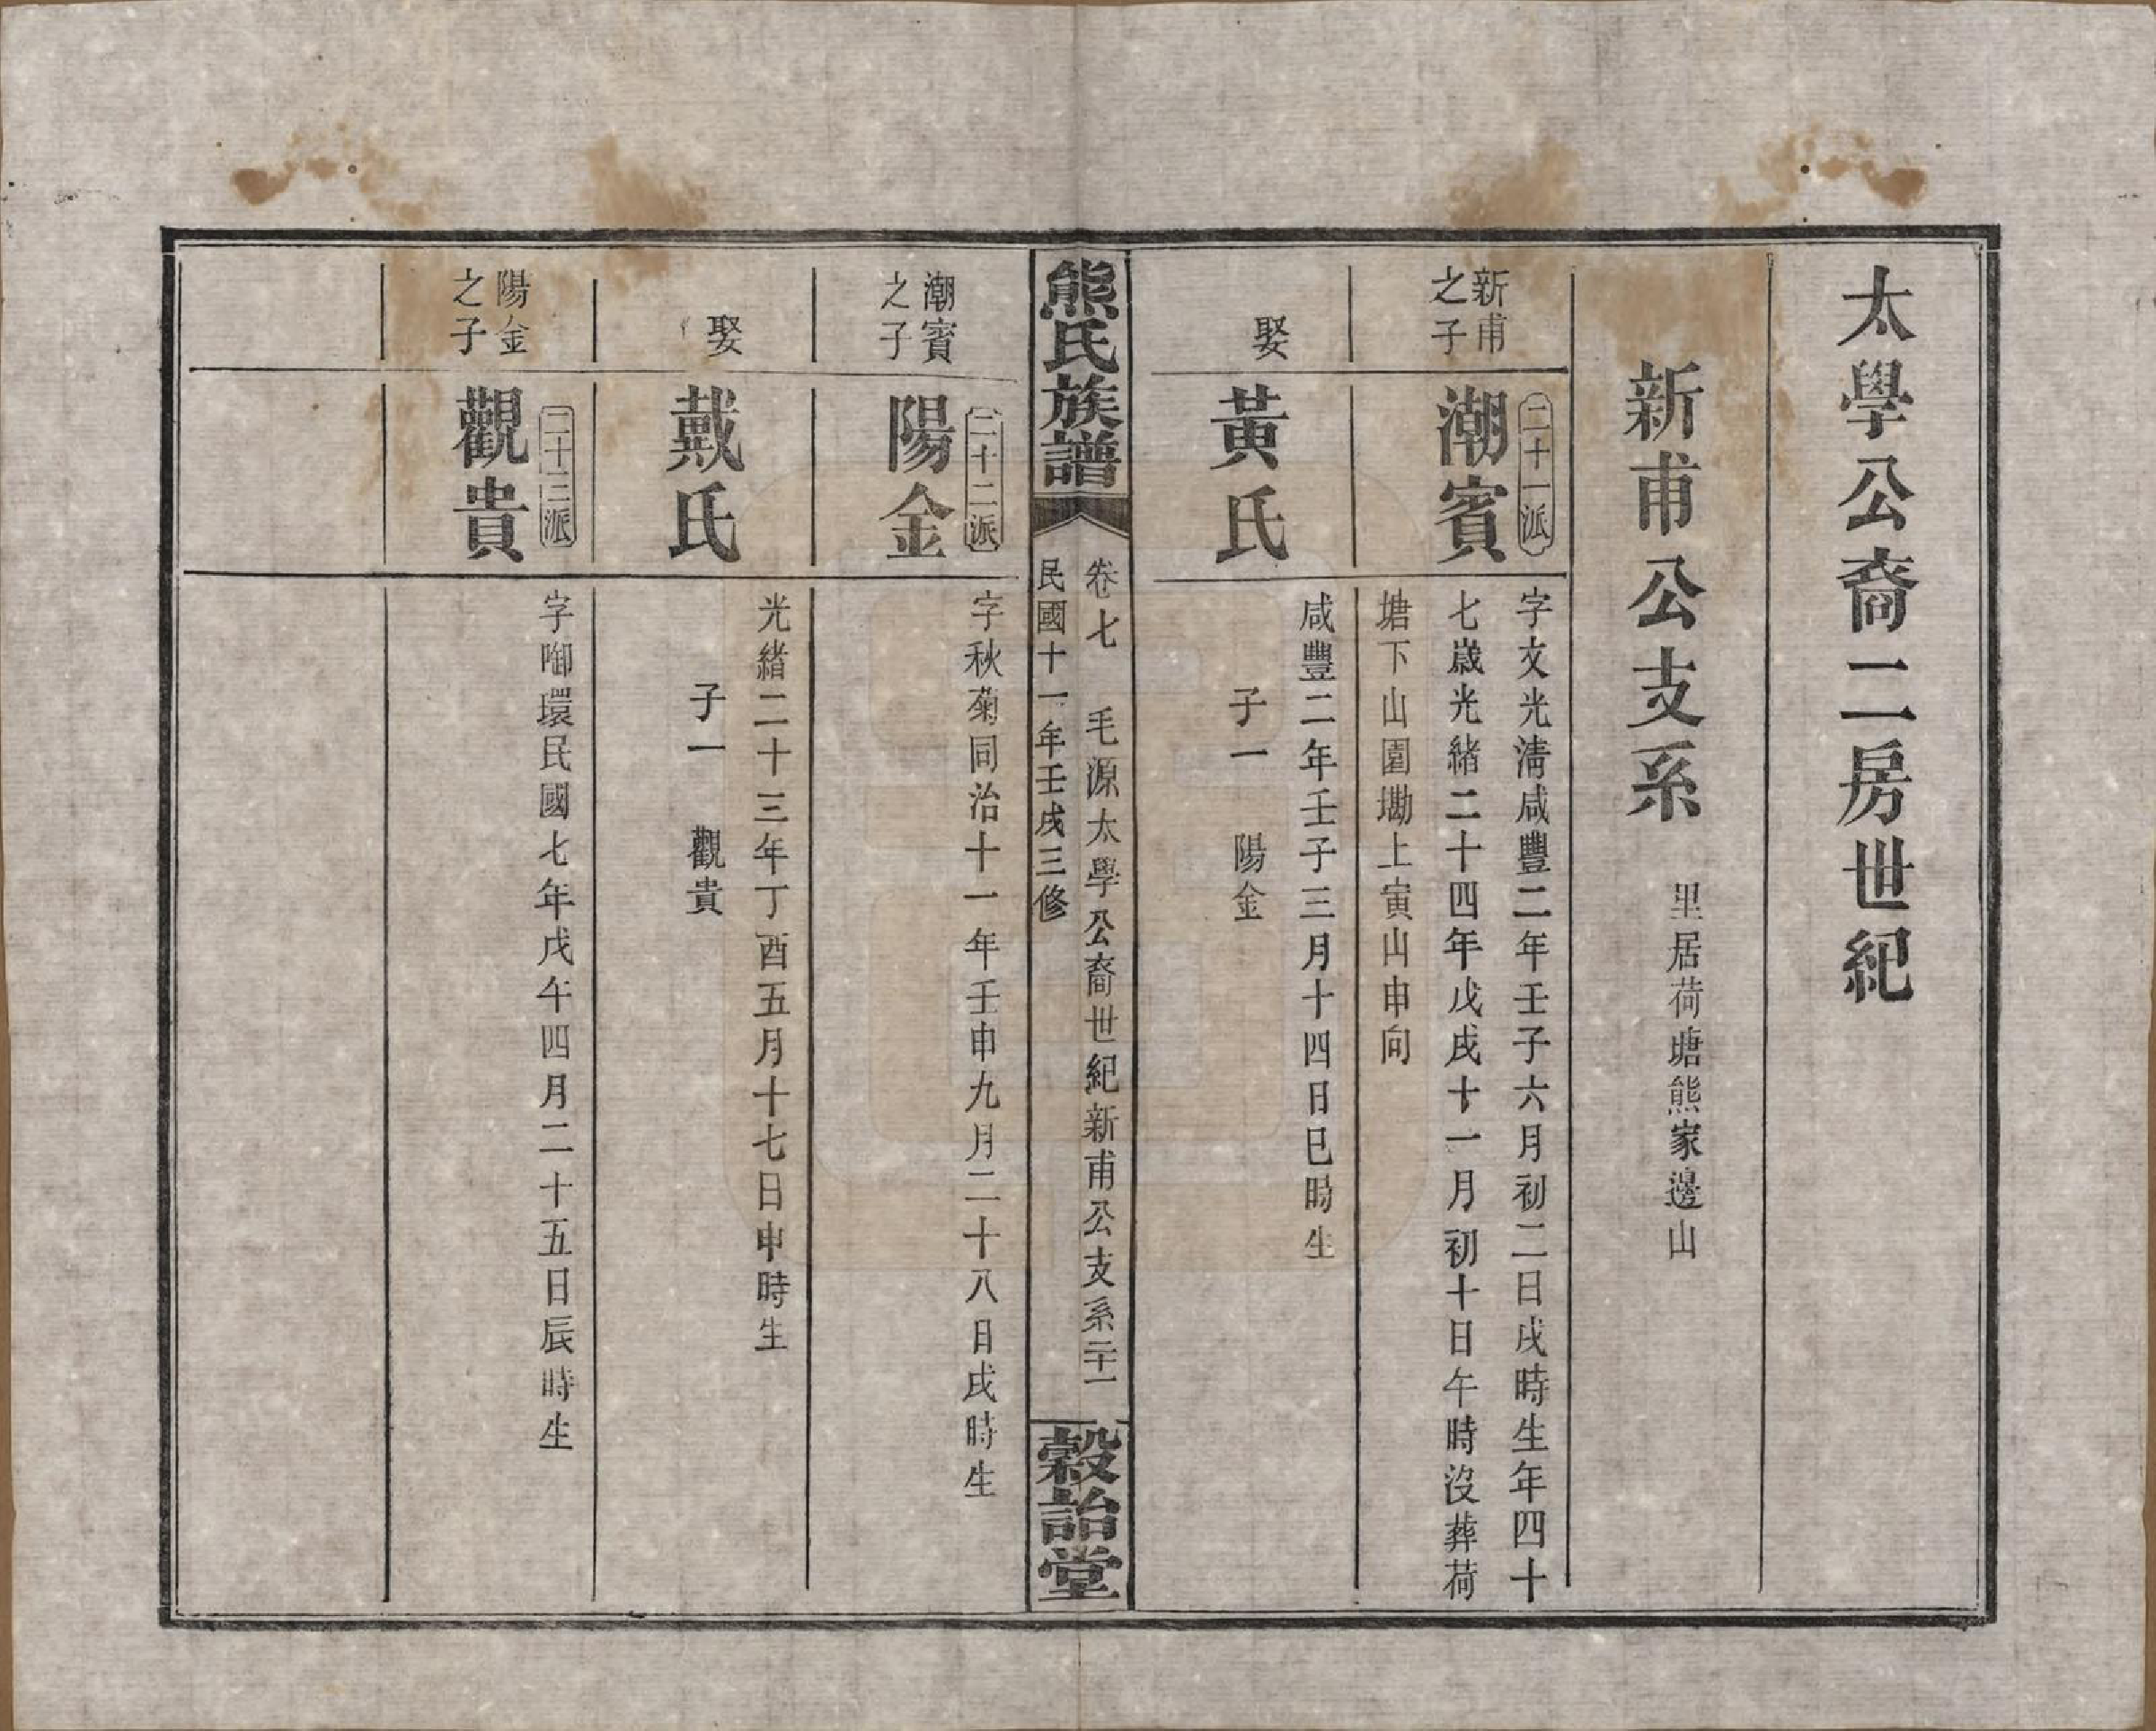 太學公裔二房世紀
新甫公支系
里居荷塘熊家邊山
新甫
之子
二十一派
潮賓
字文光淸咸豐二年壬子六月初二日戌時生年四十
七歲光緒二十四年戊戌十一月初十日午時沒葬荷
塘下山園塝上寅山申向
娶
黃氏
咸豐二年壬子三月十四日巳時生
子一 陽金
熊氏族譜
卷七 毛源太學公裔世紀新甫公支系二十一
民國十一年壬戌三修
穀詒堂
潮賓
之子
二十二派
陽金
字秋菊同治十一年壬申九月二十八日戌時生
娶
戴氏
光緒二十三年丁酉五月十七日申時生
子一 觀貴
陽金
之子
二十三派
觀貴
字啣環民國七年戊午四月二十五日辰時生